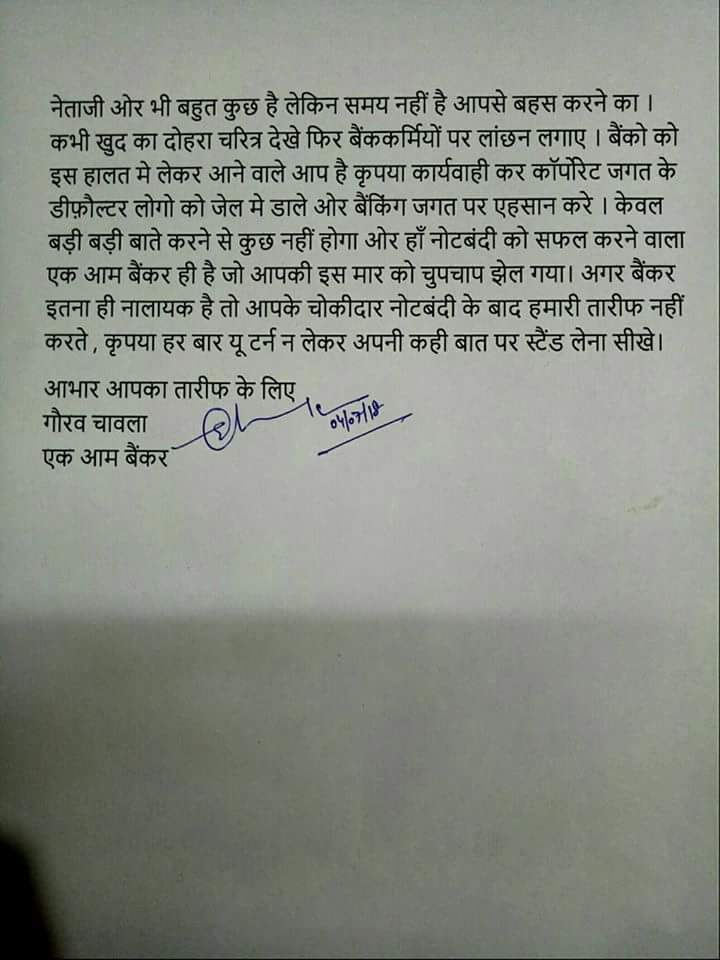 नेताजी ओर भी बहुत कुछ है लेकिन समय नहीं है आपसे बहस करने का ।
कभी खुद का दोहरा चरित्र देखे फिर बैंककर्मियों पर लांछन लगाए । बैंको को
इस हालत मे लेकर आने वाले आप है कृपया कार्यवाही कर कॉर्पोरेट जगत के
डीफ़ौल्टर लोगो को जेल मे डाले ओर बैंकिंग जगत पर एहसान करे । केवल
बड़ी बड़ी बाते करने से कुछ नहीं होगा ओर हाँ नोटबंदी को सफल करने वाला
एक आम बैंकर ही है जो आपकी इस मार को चुपचाप झेल गया। अगर बैंकर
इतना ही नालायक है तो आपके चोकीदार नोटबंदी के बाद हमारी तारीफ नहीं
करते , कृपया हर बार यू टर्न न लेकर अपनी कही बात पर स्टैंड लेना सीखे।
आभार आपका तारीफ के लिए
गौरव चावला
04/07/18
एक आम बैंकर